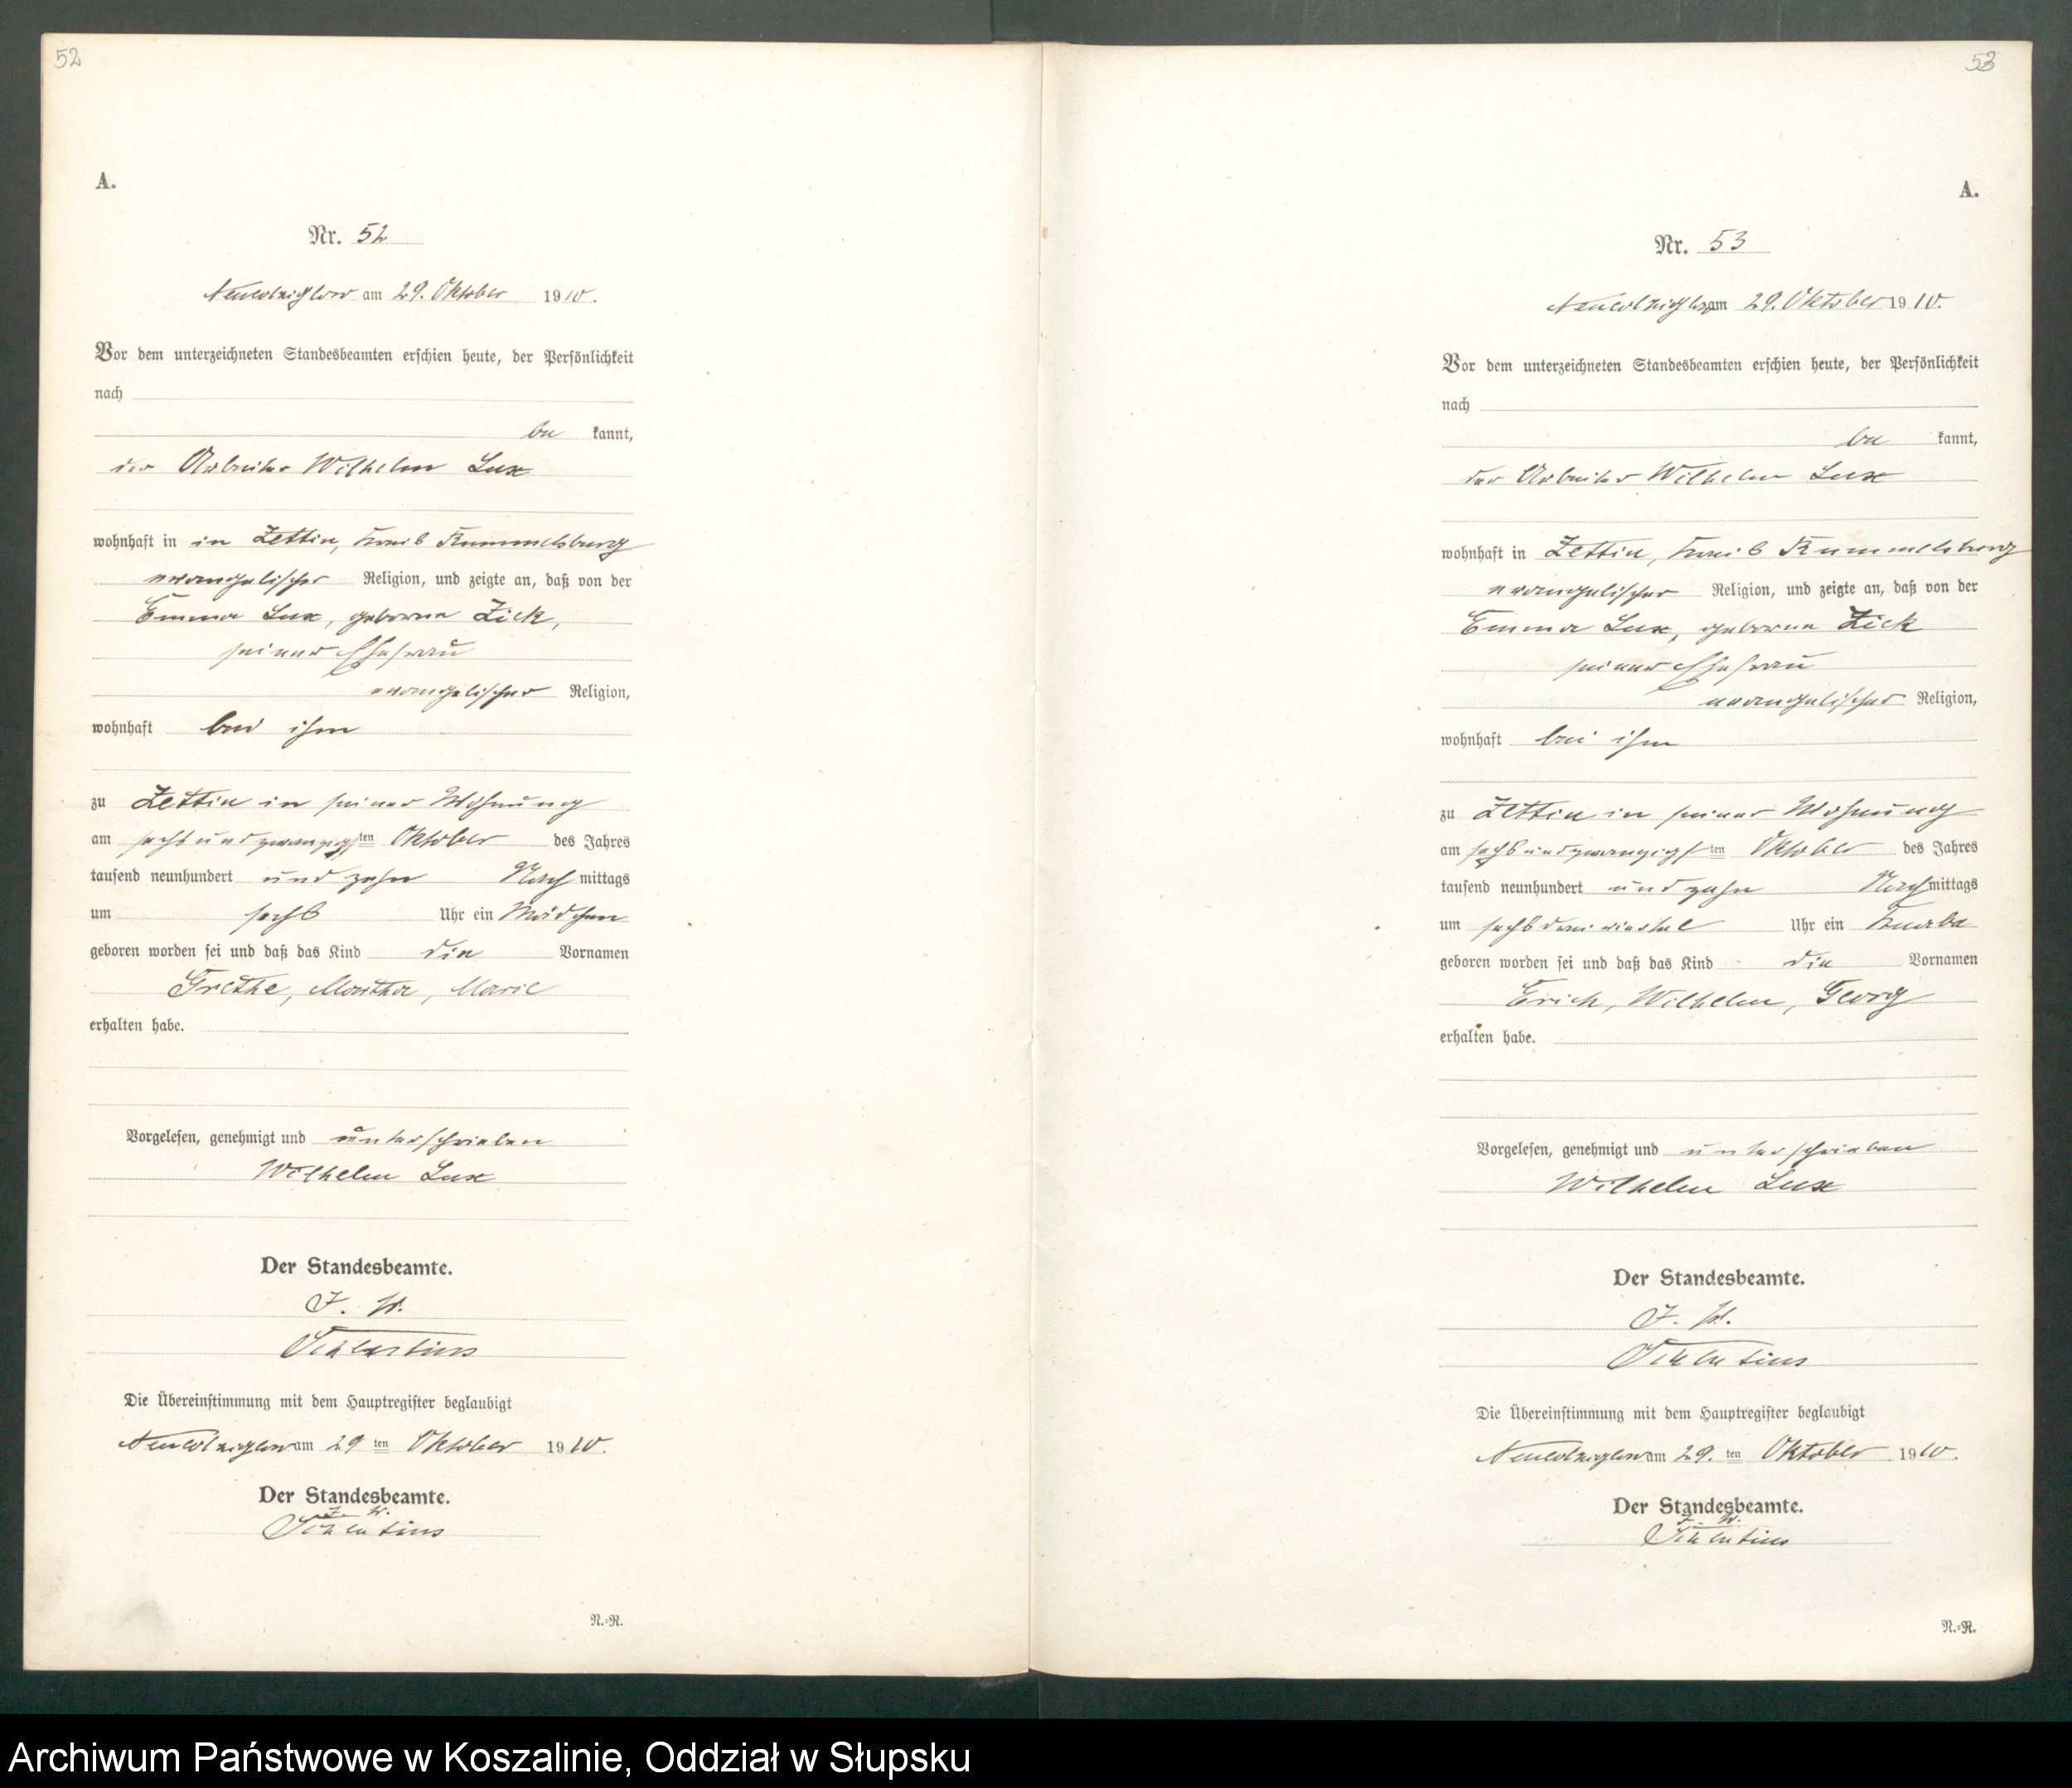 52
A.
Nr. 52
Neukolziglow am 29. Oktober 1910.
Vor dem unterzeichneten Standesbeamten erschien heute, der Persönlichkeit
nach
be kannt,
der Arbeiter Wilhelm Lux
wohnhaft in in Zettin, Kreis Rummelsburg
evangelischer Religion, und zeigte an, daß von der
Emma Lux, geborne Zick,
seiner Ehefrau
evangelischer Religion,
wohnhaft bei ihm
zu Zettin in seiner Wohnung
am sechsundzwanzigsten Oktober des Jahres
tausend neunhundert und zehn Nachmittags
um sechs Uhr ein Mädchen
geboren worden sei und daß das Kind die Vornamen
Grethe, Martha, Marie
erhalten habe.
Vorgelesen, genehmigt und unterschrieben
Wilhelm Lux
Der Standesbeamte.
J. V.
Die Übereinstimmung mit dem Hauptregister beglaubigt
Neukolziglow am 29 ten Oktober 1910.
Der Standesbeamte.
J. V.
N.-R.
53
A.
Nr. 53
Neukolziglow am 29. Oktober 1910.
Vor dem unterzeichneten Standesbeamten erschien heute, der Persönlichkeit
nach
be kannt,
der Arbeiter Wilhelm Lux
wohnhaft in Zettin, Kreis Rummelsburg
evangelischer Religion, und zeigte an, daß von der
Emma Lux, geborne Zick
seiner Ehefrau
evangelischer Religion,
wohnhaft bei ihm
zu Zettin in seiner Wohnung
am sechsundzwanzigsten Oktober des Jahres
tausend neunhundert und zehn Nachmittags
um sechs dreiviertel Uhr ein Knabe
geboren worden sei und daß das Kind die Vornamen
Erich, Wilhelm, Georg
erhalten habe.
Vorgelesen, genehmigt und unterschrieben
Wilhelm Lux
Der Standesbeamte.
J. V.
Die Übereinstimmung mit dem Hauptregister beglaubigt
Neukolziglow am 29. ten Oktober 1910.
Der Standesbeamte.
J. V.
N.-R.
Archiwum Państwowe w Koszalinie, Oddział w Słupsku